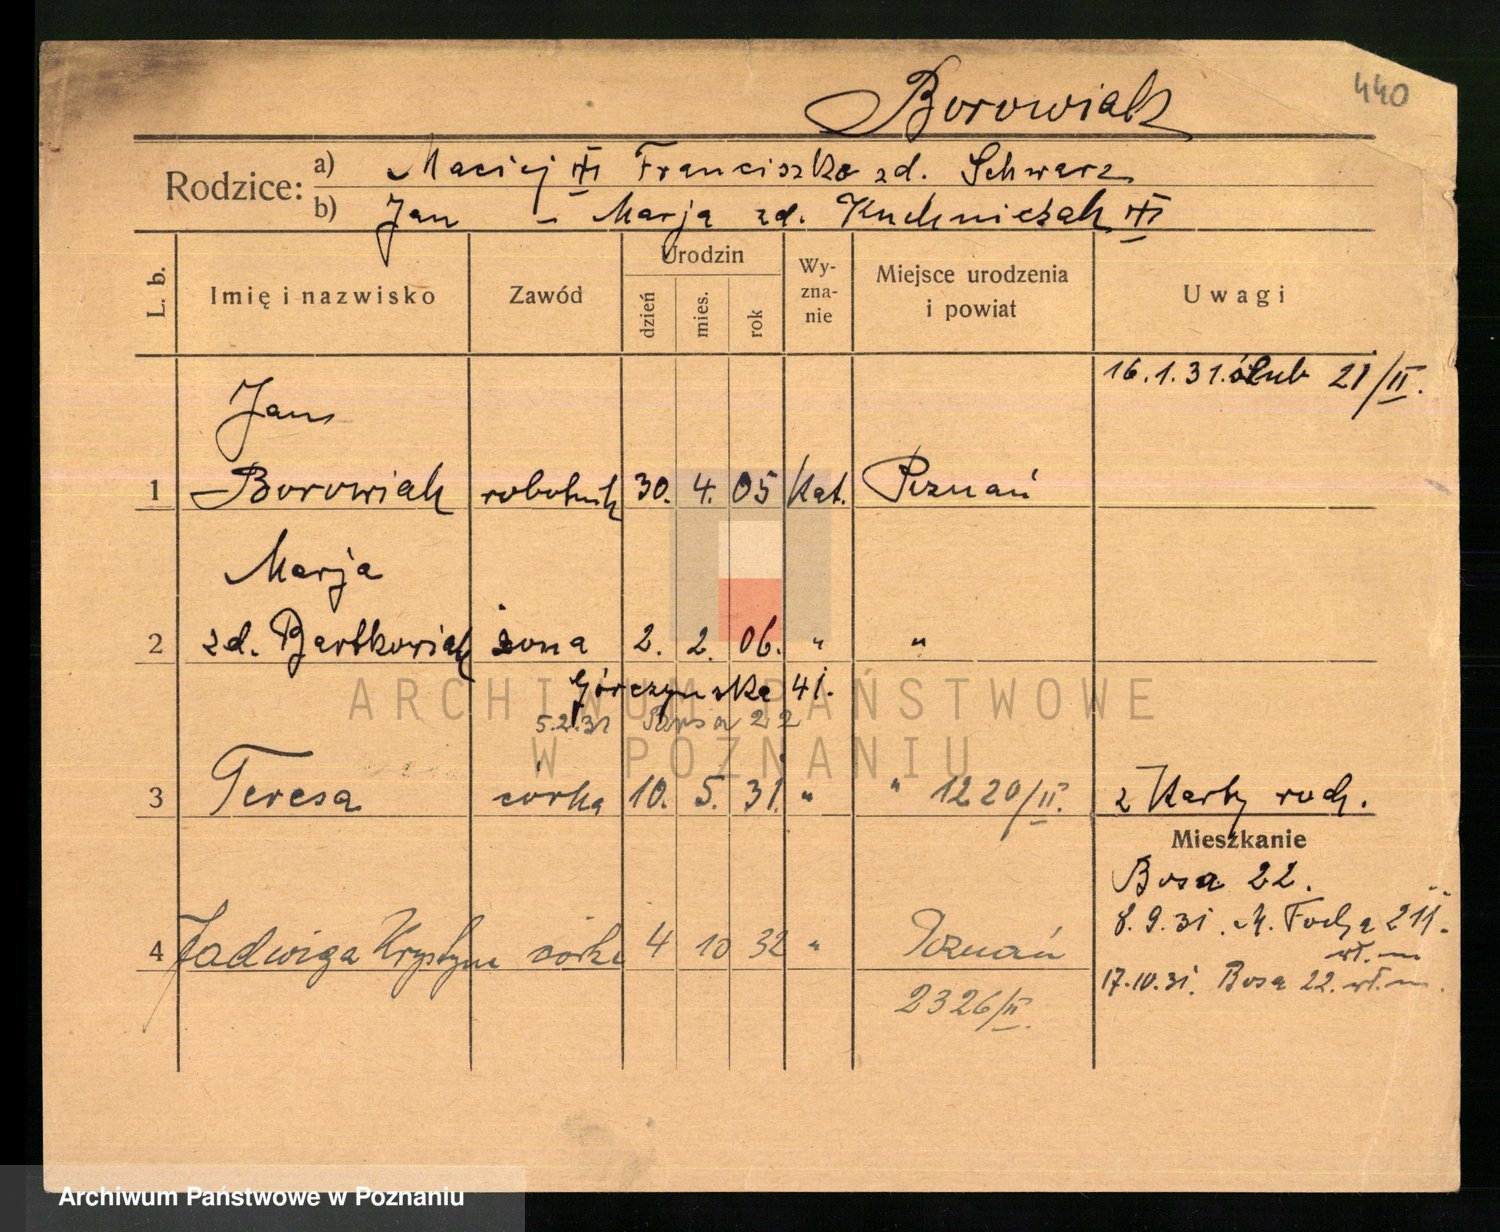 440
Borowiak
Rodzice:
a) Maciej Franciszka zd. Schwarz
b) Jan – Marja zd. Kuchniczak
L. b.
Imię i nazwisko
Zawód
Urodzin
dzień
mies.
rok
Wy-
zna-
nie
Miejsce urodzenia
i powiat
Uwagi
16.1.31. ślub 21/II.
Jan
1 Borowiak robotnik 30. 4. 05 Kat. Poznań
Marja
2 zd. Bartkowiak żona 2. 2. 06. " "
Górczyńska 41.
5.2.31 Bosa 22
3 Teresa córka 10. 5. 31. " " 1220/II. z Karty rodz.
Mieszkanie
Bosa 22.
8.9.31. M. Focha 211.
4 Jadwiga Krystyna córka 4 10 32 " Poznań
wł. m
17.10.31. Bosa 22. wł. m.
2326/II.
ARCHIWUM PAŃSTWOWE
W POZNANIU
Archiwum Państwowe w Poznaniu